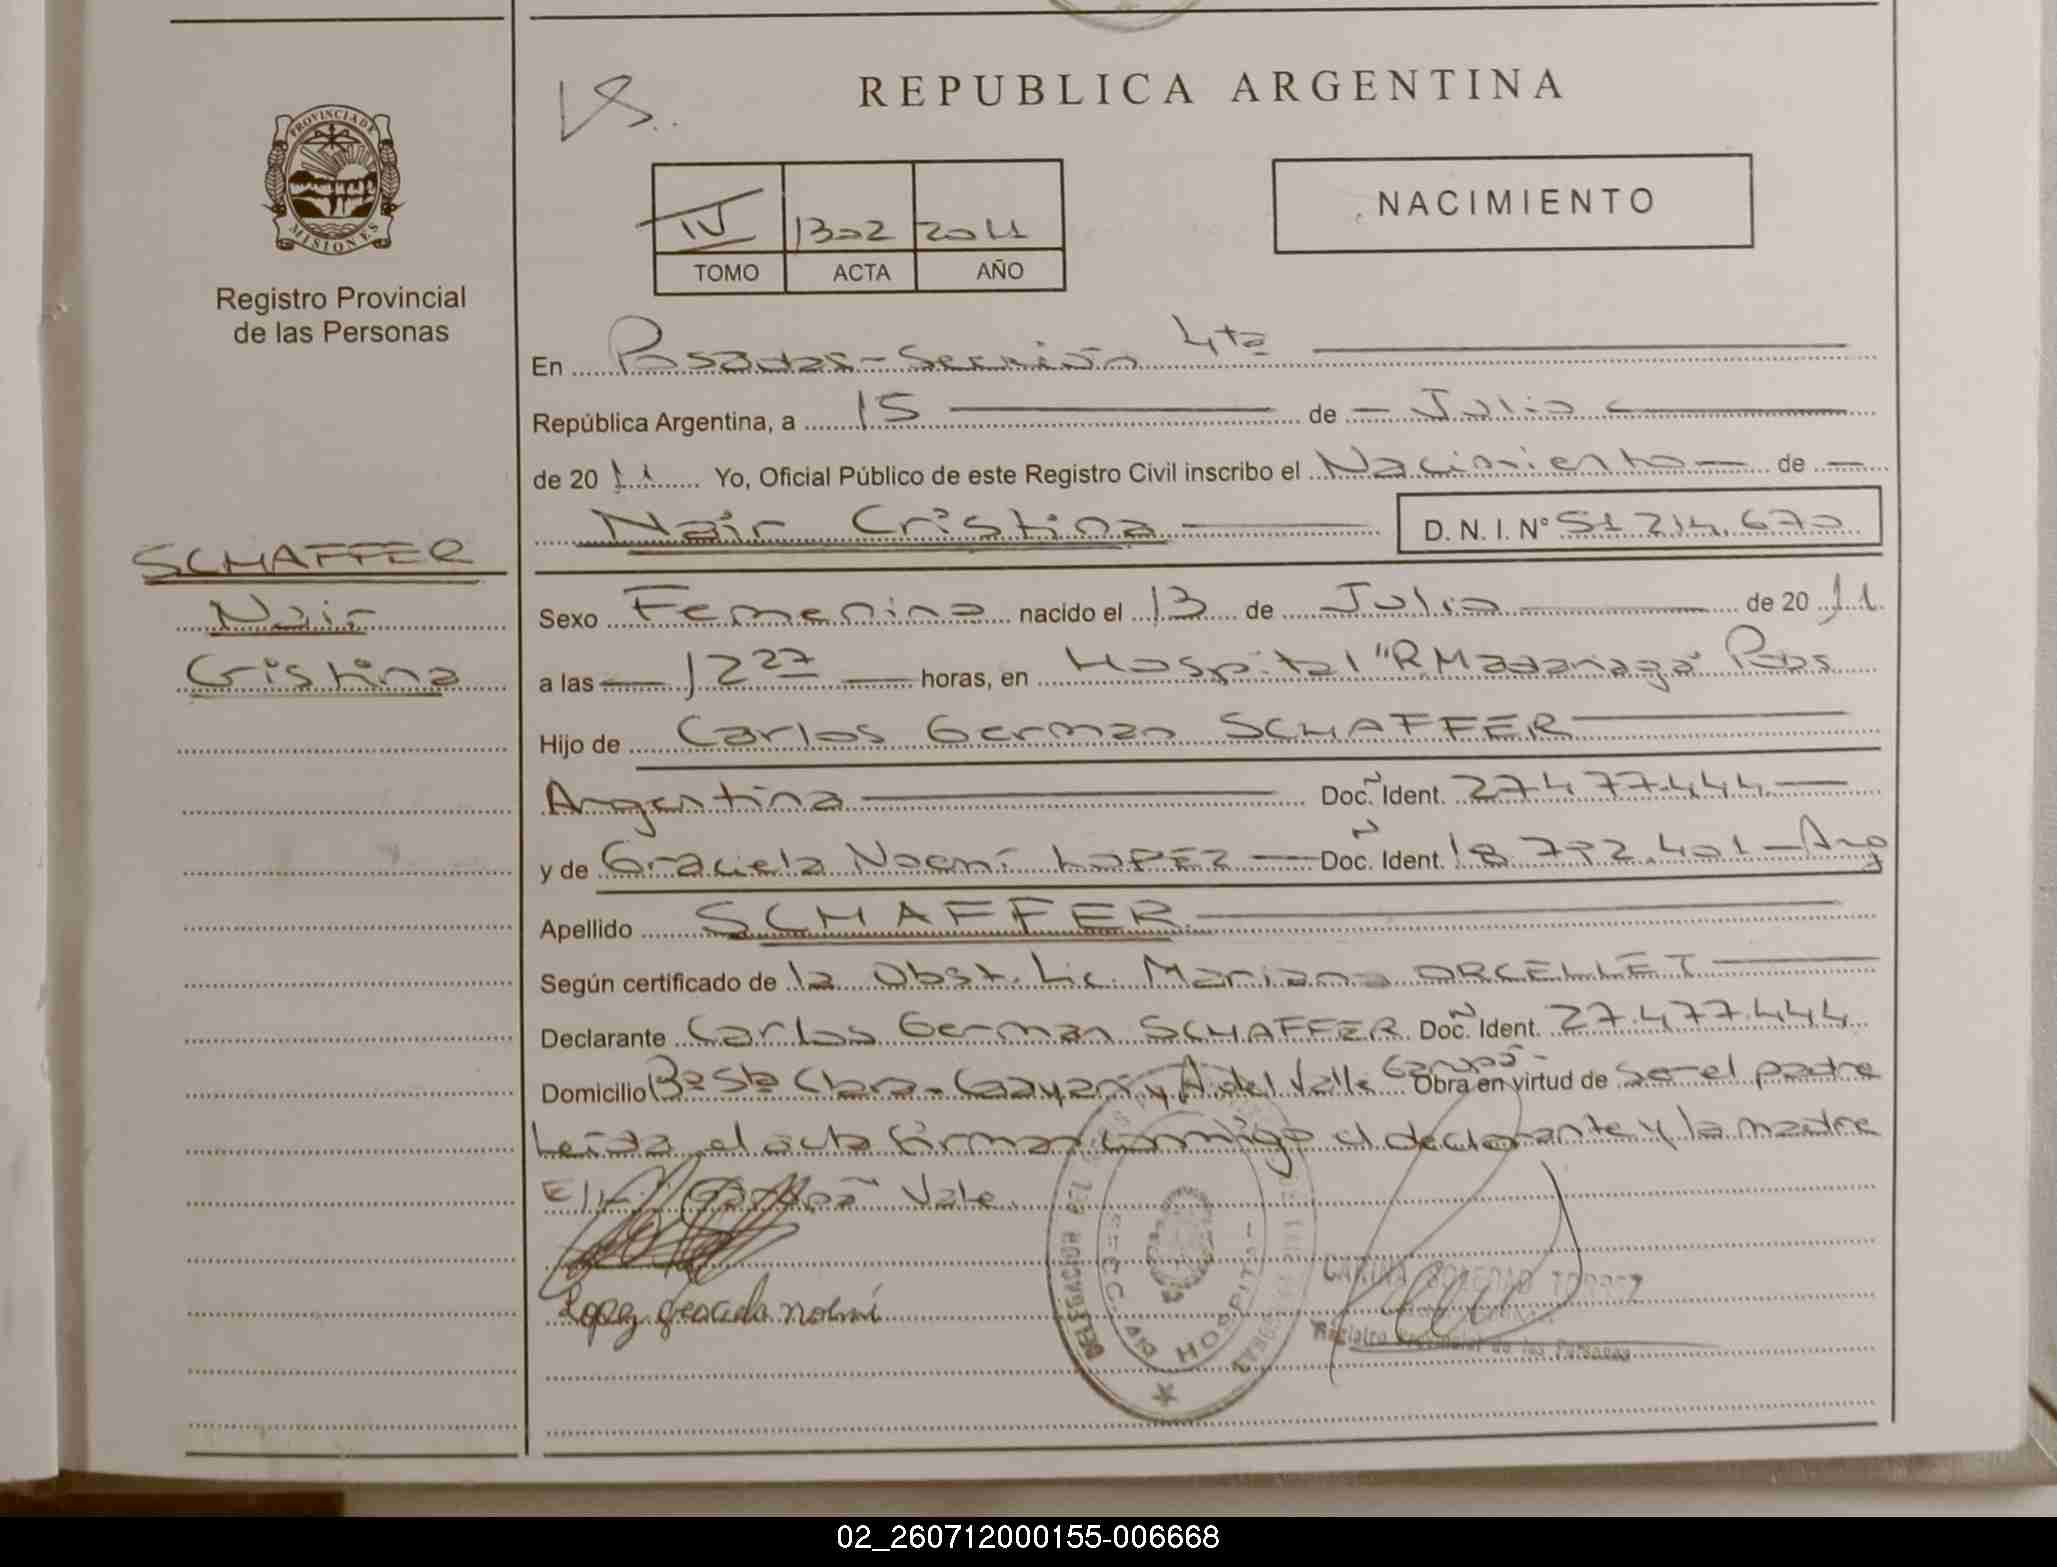 REPUBLICA ARGENTINA
PROVINCIA DE
MISIONES
Registro Provincial
de las Personas
NACIMIENTO
IV 1302 2011
TOMO ACTA AÑO
En Posadas - Sección 4ta
República Argentina, a 15 de Julio
de 2011 Yo, Oficial Público de este Registro Civil inscribo el Nacimiento de
Nair Cristina D. N. I. N° 51.214.670
SCHAFFER
Nair
Cristina
Sexo Femenino nacido el 13 de Julio de 2011
a las 12 27 horas, en Hospital "R Madariaga" Pdas
Hijo de Carlos German SCHAFFER
Argentina Doc. Ident. 27.477.444
y de Graciela Noemí LOPEZ Doc. Ident. 18.792.401 - Arg
Apellido SCHAFFER
Según certificado de la Obst. Lic. Mariana ORCELLET
Declarante Carlos German SCHAFFER Doc. Ident. 27.477.444
Domicilio Bº Sta Clara - y A. del Valle Garupá - Obra en virtud de ser el padre
Leída el acta firman conmigo el declarante y la madre
E/L: Garupá Vale.
Lopez graciela noemí
HOSPITAL
TORREZ
Registro Provincial de las Personas
02_260712000155-006668